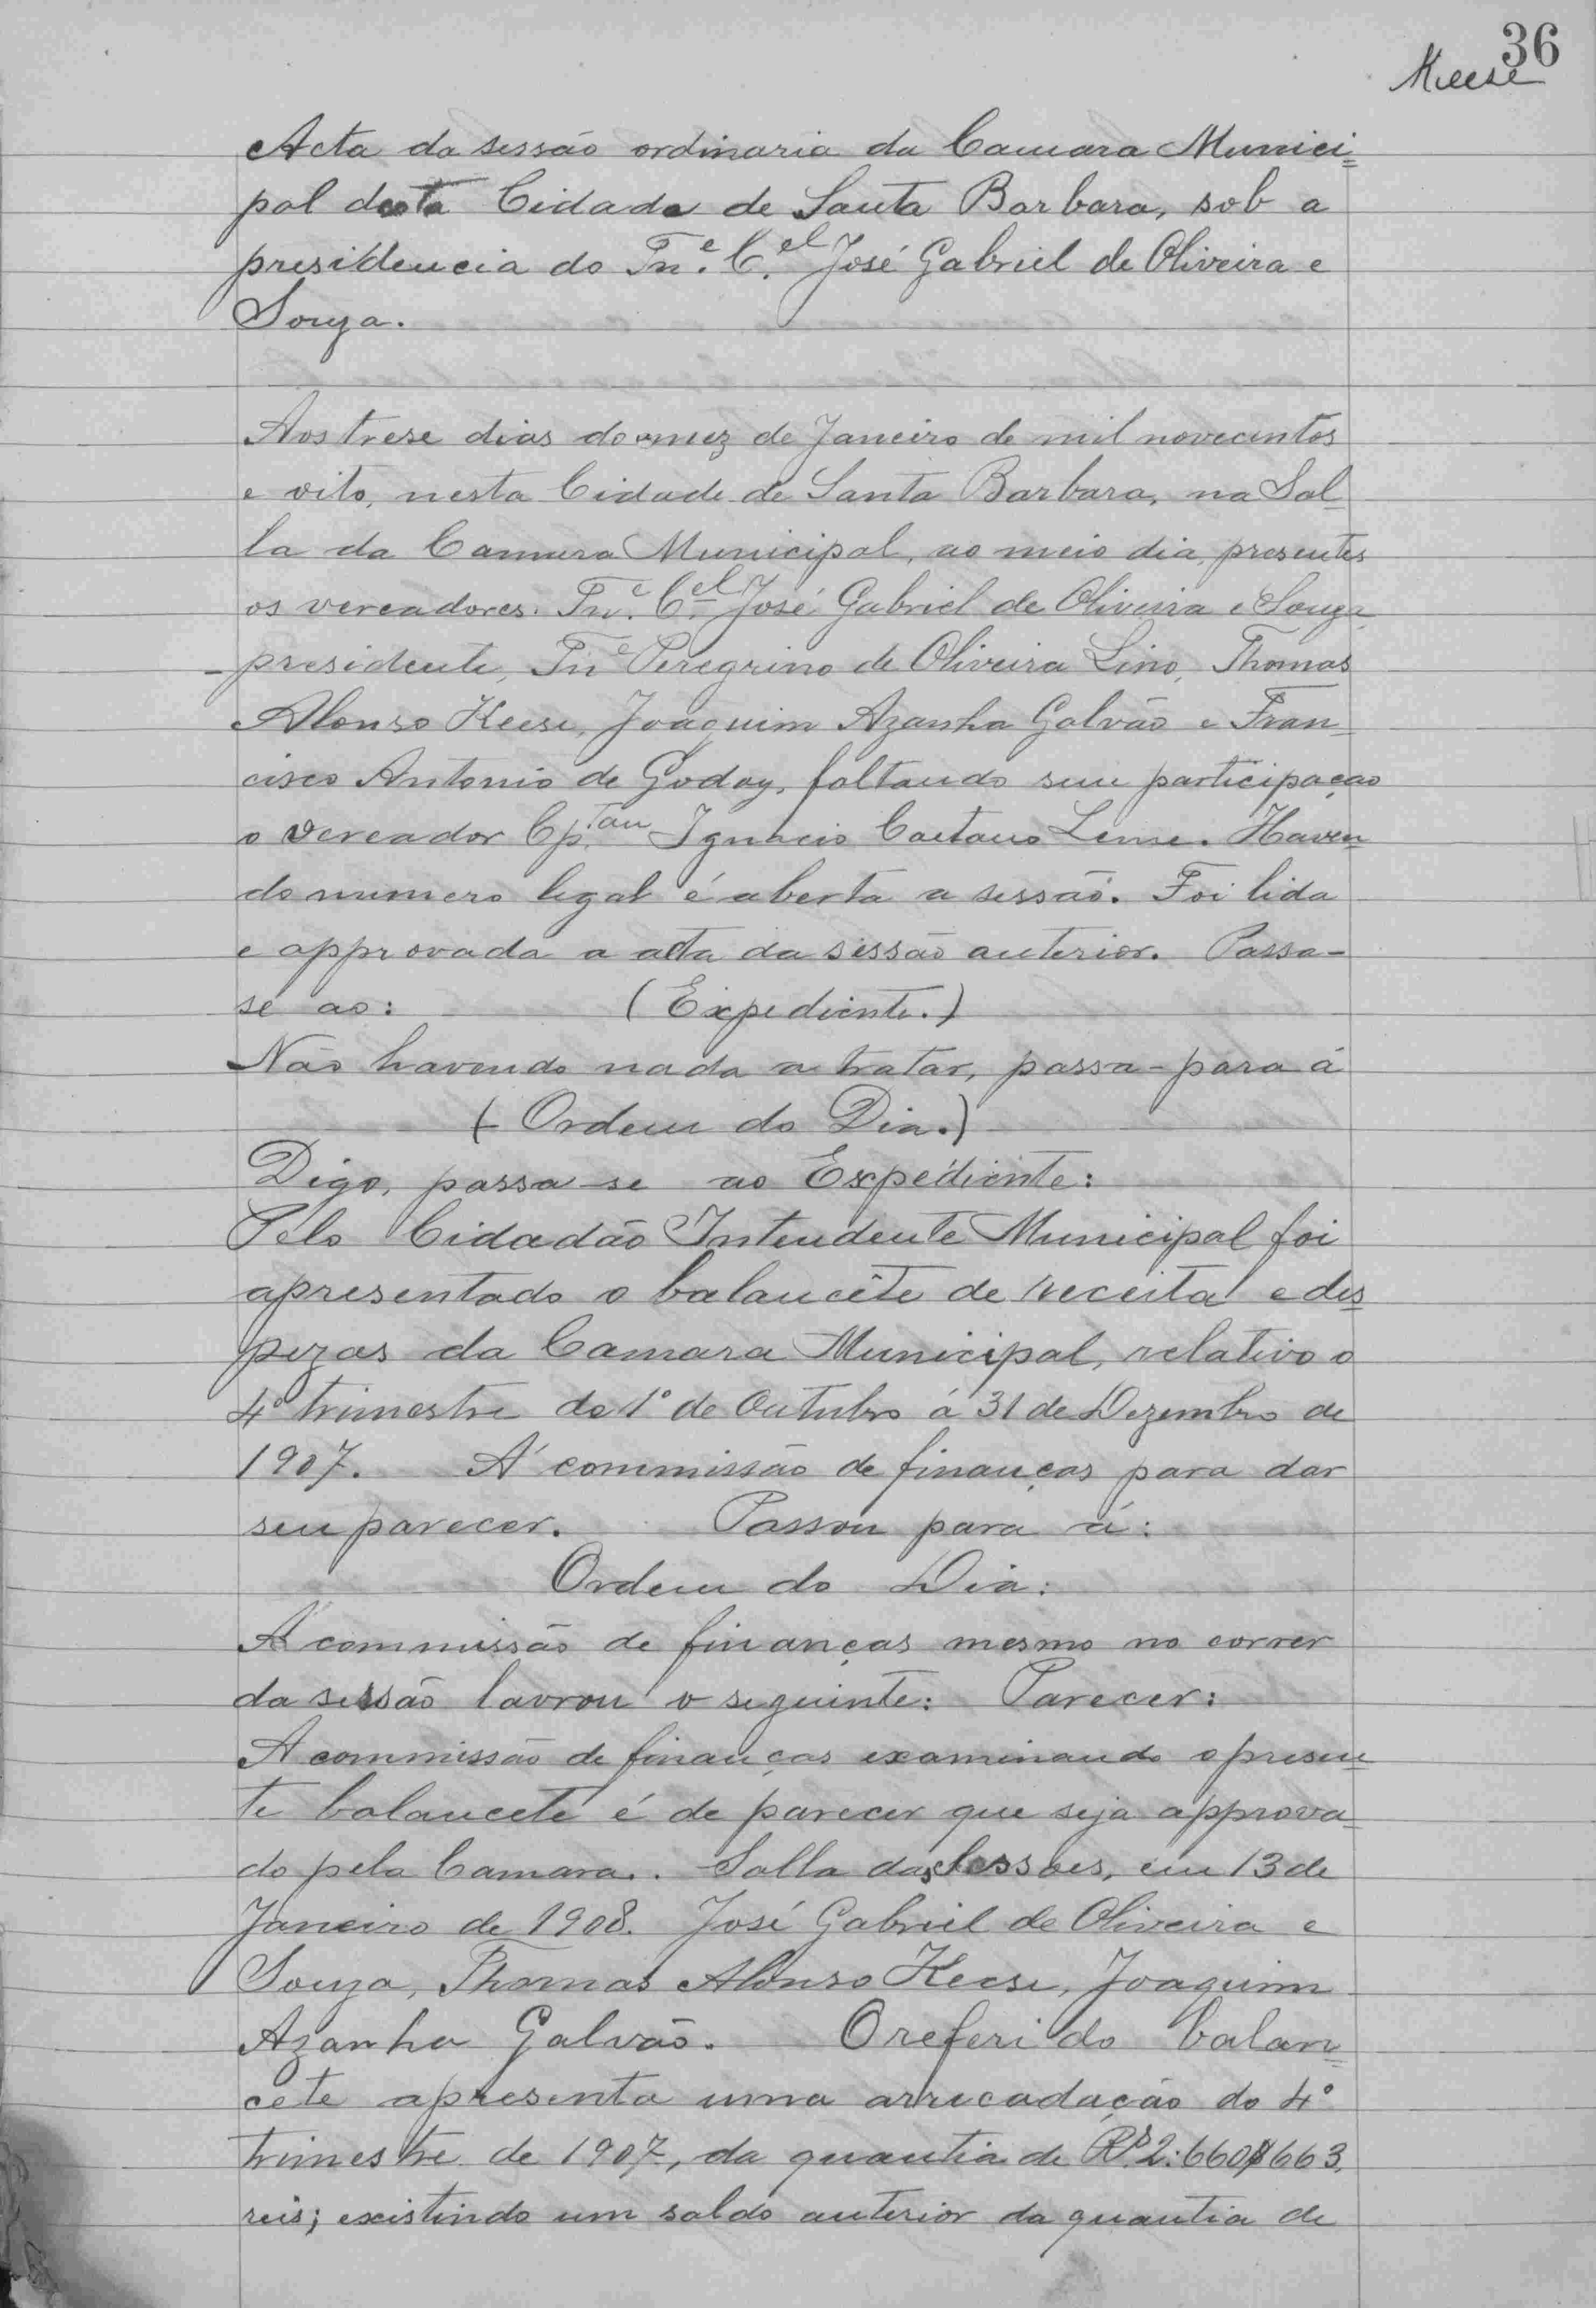 36
Keese
Acta da sessão ordinaria da Camara Munici=
pal desta Cidade de Santa Barbara, sob a
presidencia do Tn.e C.el José Gabriel de Oliveira e
Souza.
Aos trese dias do mez de Janeiro de mil novecentos
e oito, nesta Cidade de Santa Barbara, na Sal-
la da Camara Municipal, ao meio dia, presentes
os vereadores. Tn.e C.el José Gabriel de Oliveira e Souza
- presidente, Tn.e Peregrino de Oliveira Lino, Thomas
Alonso Keese, Joaquim Azanha Galvão e Fran-
cisco Antonio de Godoy, faltando sem participação
o vereador Cp.tau Ignacio Caetano Leme. Haven=
do numero legal é aberta a sessão. Foi lida
e approvada a acta da sessão anterior. Passa-
se ao: (Expediente.)
Não havendo nada a tratar, passa-para á
(Ordem do Dia.)
Digo, passa-se ao Expediente:
Pelo Cidadão Intendente Municipal foi
apresentado o balancête de receita e des=
pezas da Camara Municipal, relativo o
4º trimestre de 1º de Outubro á 31 de Dezembro de
1907. A' commissão de finanças para dar
seu parecer. Passou para á:
Ordem do Dia:
A commissão de finanças mesmo no correr
da sessão lavrou o seguinte: Parecer:
A commissão de finanças examinando o presen=
te balancete é de parecer que seja approva-
do pela Camara.. Salla das sessoes, em 13 de
Janeiro de 1908. José Gabriel de Oliveira e
Souza, Thomas Alonso Keese, Joaquim
Azanha Galvão. O referido balan=
cete apresenta uma arrecadação do 4º
trimestre de 1907, da quantia de Rs. 2:660$663
reis; existindo um saldo anterior da quantia de